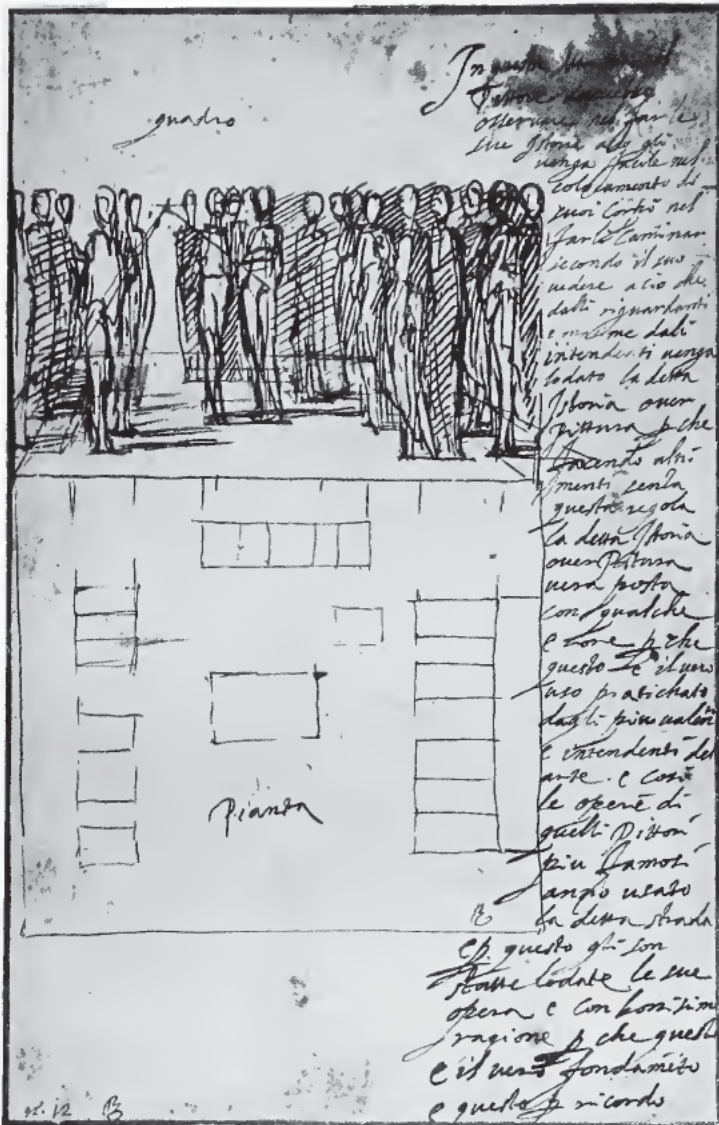 quadro
In questo
Pittore
osservare nel far le
sue Istorie acio gli
uenga facile nel
colocamento di
suoi Corpi nel
farli Caminar
secondo il suo
uedere acio che
dalli riguardanti
e massime dalli
intendenti uenga
lodato la detta
Istoria ouer
pittura p che
facendo altri
menti senza
questa regola
la detta Istoria
ouer Pittura
uera posta
con qualche
erore p che
questo e il uero
uso pratichato
dagli piu ualenti
e intendenti del
arte. e cosi
le opere di
quelli Pittori
piu famosi
anno usato
la detta strada
e p questo gli son
statte lodate le sue
opera e con bonisima
ragione p che questo
e il uero fondamēto
e questo p ricordo
Pianta
12